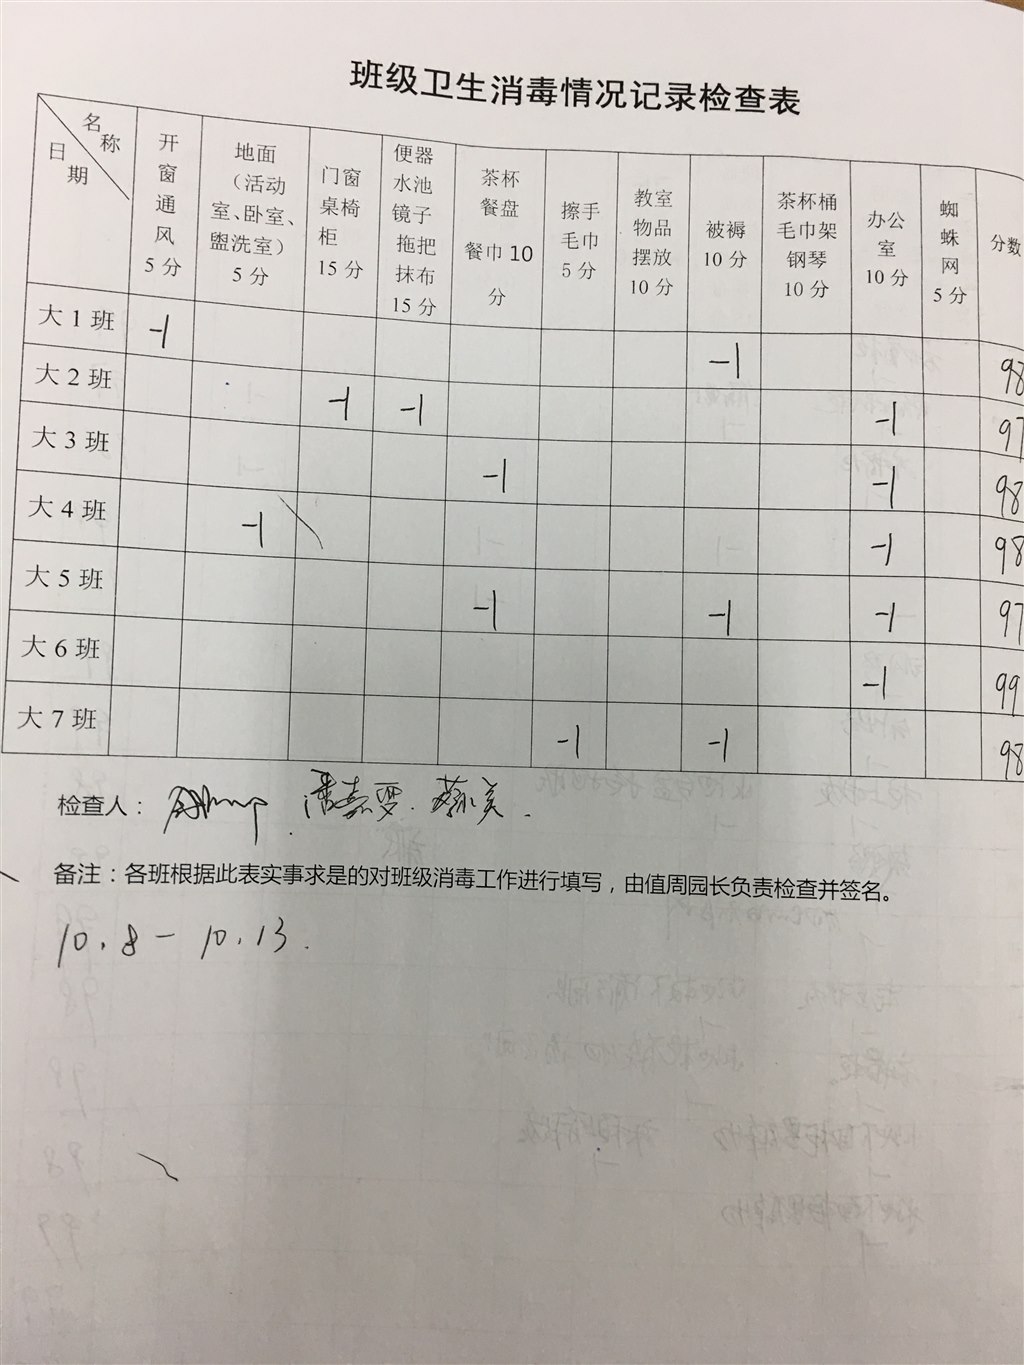 班级卫生消毒情况记录检查表
名称
日期
开窗通风5分
地面（活动室、卧室、盥洗室）5分
门窗桌椅柜15分
便器水池镜子拖把抹布15分
茶杯餐盘餐巾10分
擦手毛巾5分
教室物品摆放10分
被褥10分
茶杯桶毛巾架钢琴10分
办公室10分
蜘蛛网5分
分数
大1班 -1 -1 98
大2班 -1 -1 -1 97
大3班 -1 -1 98
大4班 -1 -1 98
大5班 -1 -1 -1 97
大6班 -1 99
大7班 -1 -1 98
检查人：
备注：各班根据此表实事求是的对班级消毒工作进行填写，由值周园长负责检查并签名。
10.8－10.13.